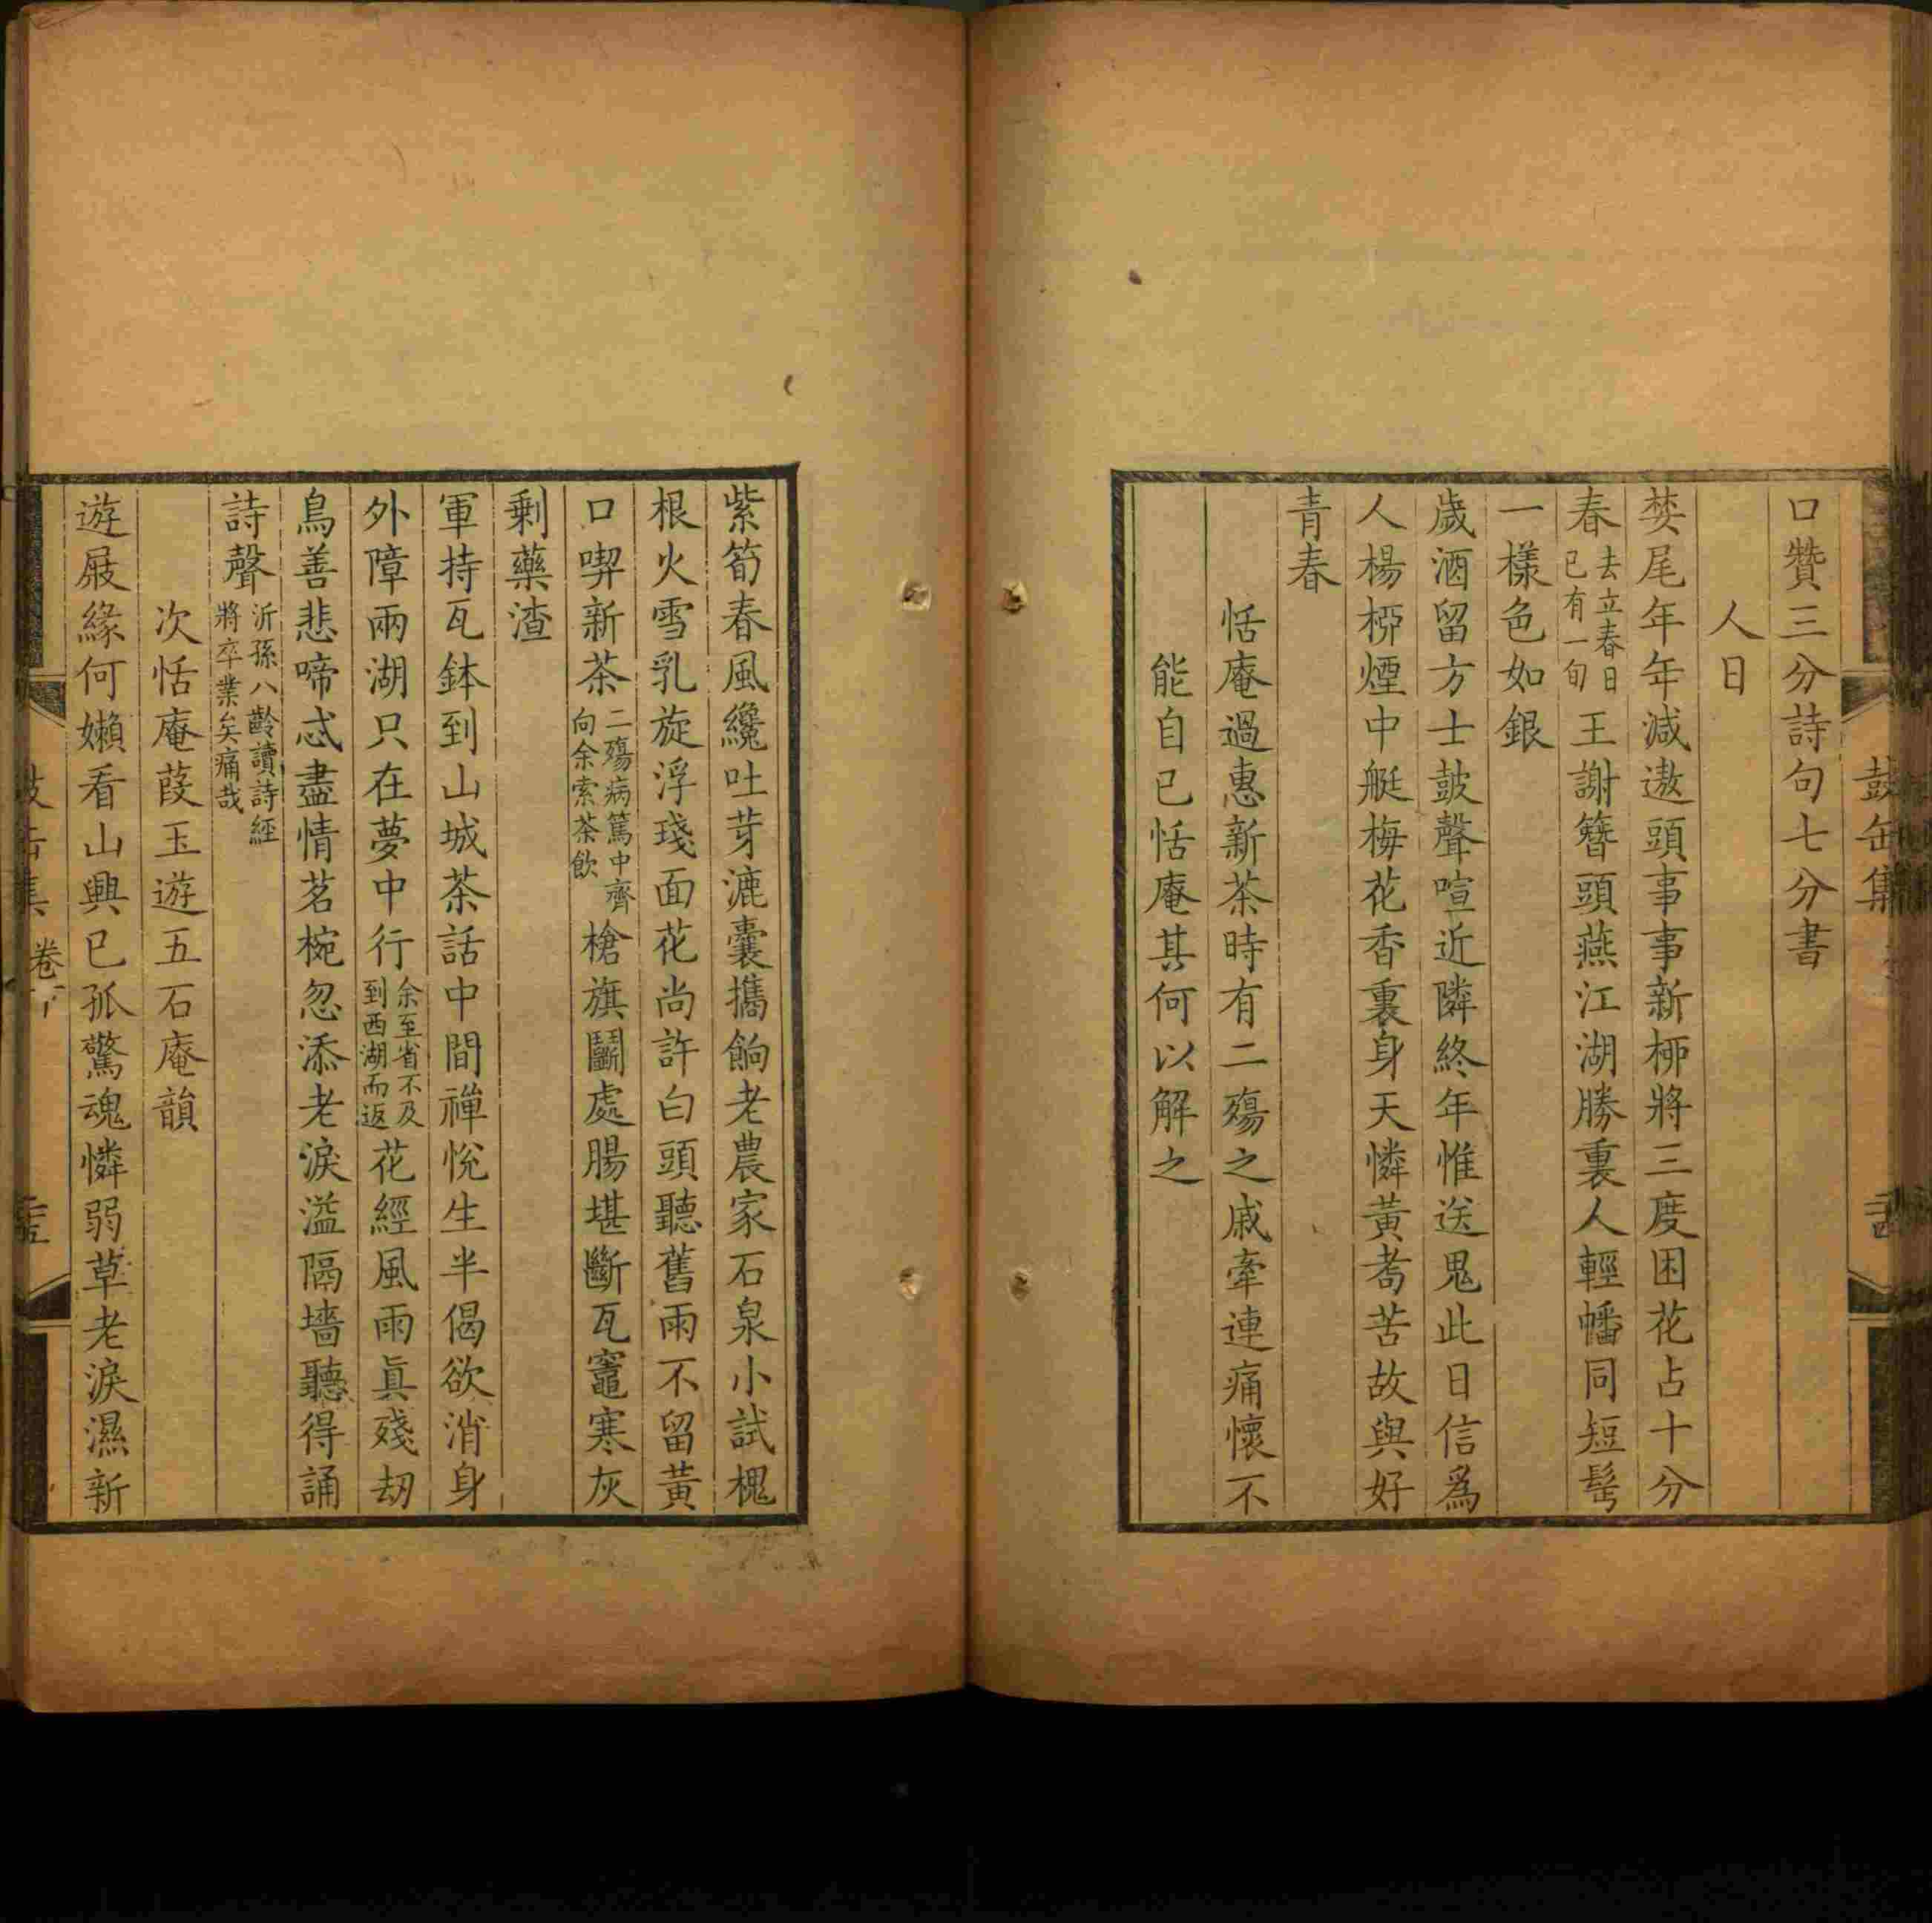 鼓缶集
口贊三分詩句七分書
人日
婪尾年年減遨頭事事新柳將三度困花占十分
春去立春日已有一旬王謝簪頭燕江湖勝裏人輕幡同短髩
一樣色如銀
歲酒留方士鼓聲喧近隣終年惟送鬼此日信爲
人楊柳煙中艇梅花香裏身天憐黃耇苦故與好
青春
恬庵過惠新茶時有二殤之戚牽連痛懷不
能自已恬庵其何以解之
紫筍春風纔吐芽漉囊攜餉老農家石泉小試槐
根火雪乳旋浮琖面花尚許白頭聽舊雨不留黃
口喫新茶二殤病篤中齊向余索茶飲槍旗鬭處腸堪斷瓦竈寒灰
剩藥渣
軍持瓦鉢到山城茶話中間禪悅生半偈欲消身
外障兩湖只在夢中行余至省不及到西湖而返花經風雨眞殘刧
鳥善悲啼忒盡情茗椀忽添老淚溢隔墻聽得誦
詩聲沂孫八齡讀詩經將卒業矣痛哉
次恬庵葭玉遊五石庵韻
遊屐緣何嬾看山興已孤驚魂憐弱草老淚濕新
鼓缶集 卷下